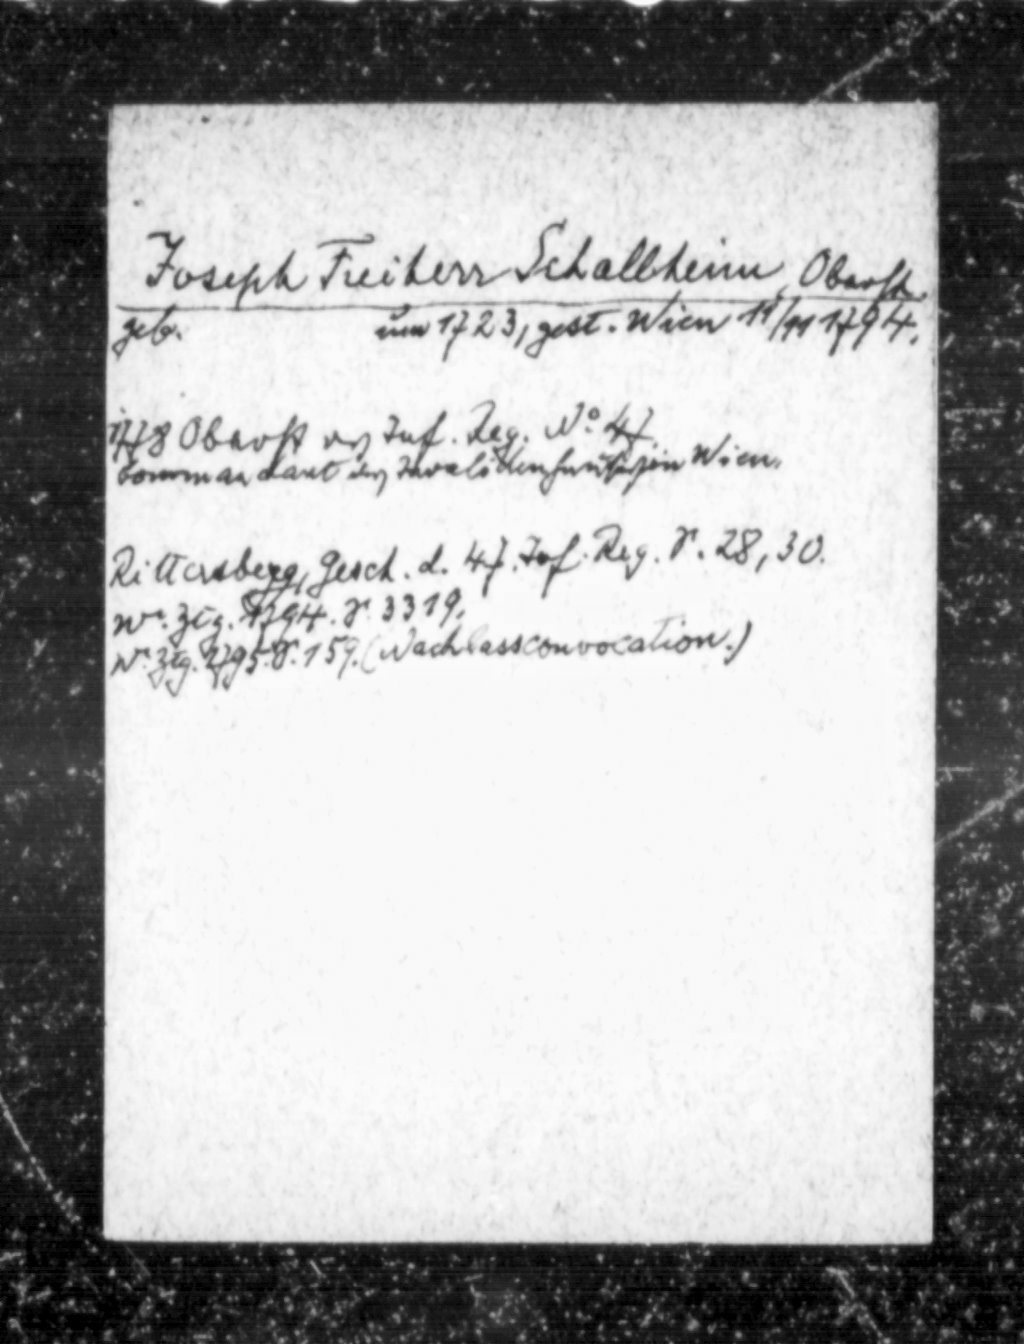 Joseph Freiherr Schallheim, Oberst.
geb. um 1723, gest. Wien 11/11 1794.
1778 Oberst des Inf. Reg. No. 47.
Commandant des Invalidenhauses in Wien.
Rittersberg, Gesch. d. 47. Inf. Reg. S. 28, 30.
Wr. Ztg. 1794. S. 3319.
Wr. Ztg. 1795. S. 159. (Nachlassconvocation.)